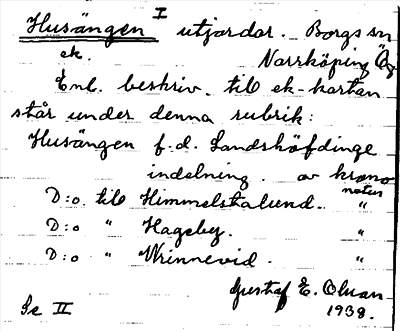 Husängen I utjordar. Borgs sn
ek. Norrköping Ög
Enl. beskriv. till ek-kartan
står under denna rubrik:
Husängen f.d. Landshöfdinge
indelning. av krono
natur
D:o till Himmelstalund. "
D:o " Hageby. "
D:o " Wrinnevid. "
Gustaf E. Olsson
1938.
Se II